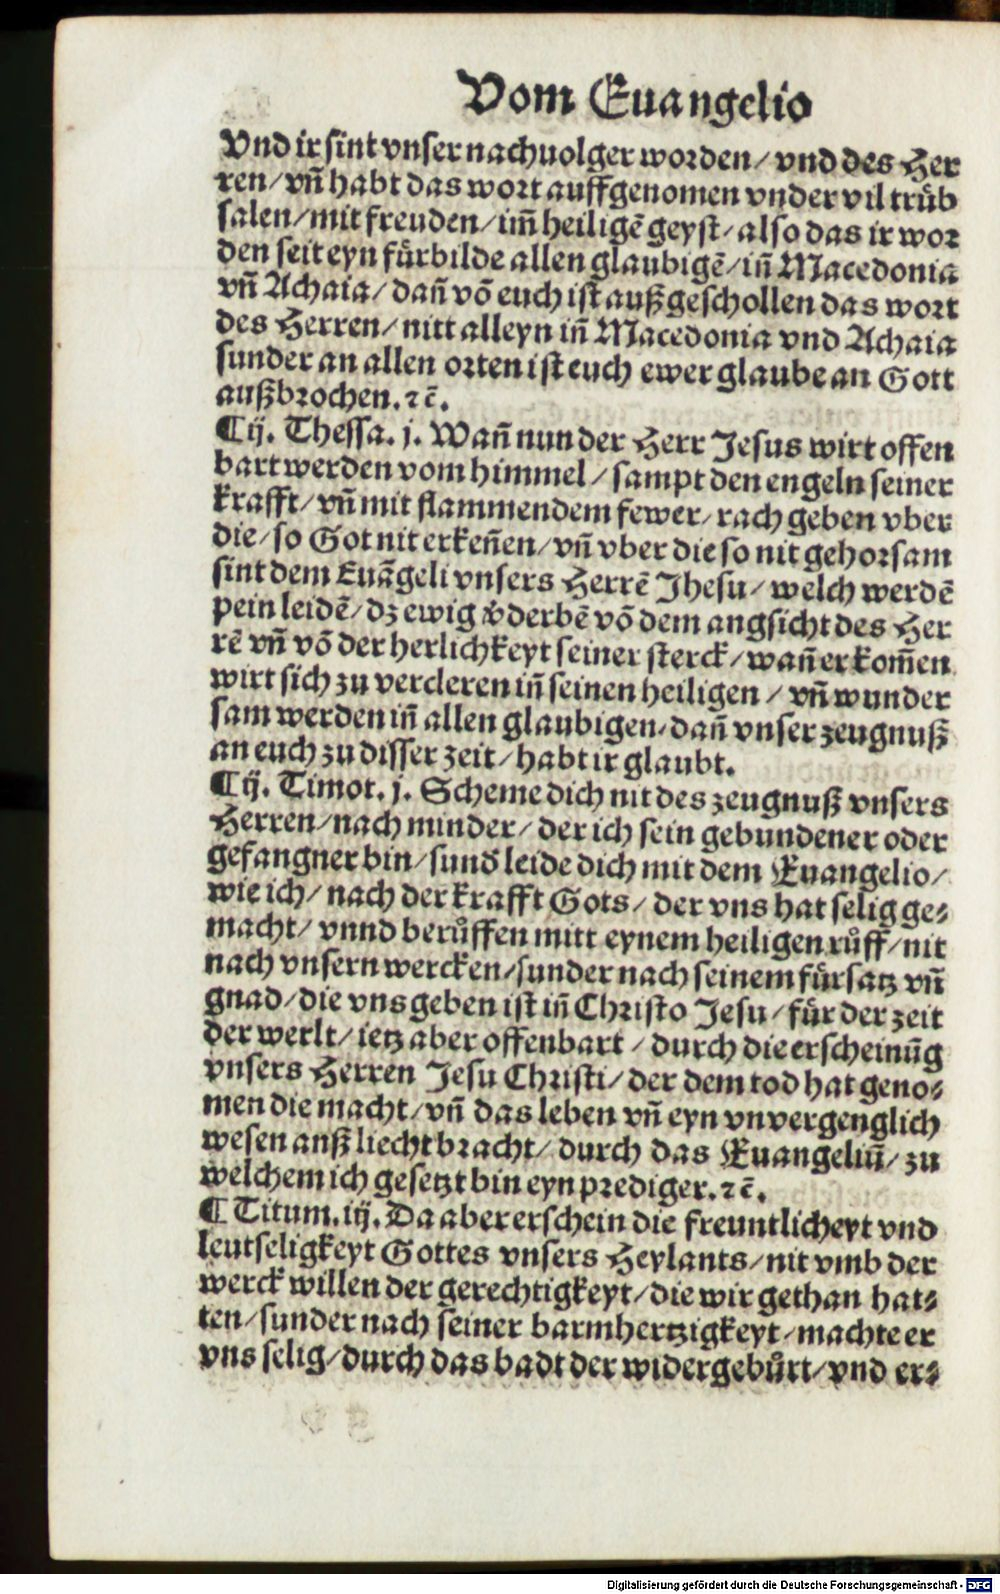 Vom Euangelio
Vnd ir sint vnser nachuolger worden / vnd des Her
ren / vn̄ habt das wort auffgenomen vnder vil truͤb
salen / mit freuden / im̄ heiligē geyst / also das ir wor
den seit eyn fuͤrbilde allen glaubigē / in̄ Macedonia
vn̄ Achaia / dan̄ vō euch ist außgeschollen das wort
des Herren / nitt alleyn in̄ Macedonia vnd Achaia
sunder an allen orten ist euch ewer glaube an Gott
außbrochen. ⁊ c̄.
¶ ij. Thessa. j. Wan̄ nun der Herr Jesus wirt offen
bart werden vom himmel / sampt den engeln seiner
krafft / vn̄ mit flammendem fewer / rach geben vber
die / so Got nit erken̄en / vn̄ vber die so nit gehorsam
sint dem Euāgeli vnsers Herrē Jhesu / welch werdē
pein leidē / dz ewig v̄derbē vō dem angsicht des Her
rē vn̄ vō der herlichkeyt seiner sterck / wan̄ er kom̄en
wirt sich zu vercleren in̄ seinen heiligen / vn̄ wunder
sam werden in̄ allen glaubigen / dan̄ vnser zeugnuß
an euch zu disser zeit / habt ir glaubt.
¶ ij. Timot. j. Scheme dich nit des zeugnuß vnsers
Herren / nach minder / der ich sein gebundener oder
gefangner bin / sund̄ leide dich mit dem Euangelio /
wie ich / nach der krafft Gots / der vns hat selig ge⸗
macht / vnnd beruͦffen mitt eynem heiligen ruͦff / nit
nach vnsern wercken / sunder nach seinem fuͤrsatz vn̄
gnad / die vns geben ist in̄ Christo Jesu / fuͤr der zeit
der werlt / ietz aber offenbart / durch die erscheinūg
vnsers Herren Jesu Christi / der dem tod hat geno⸗
men die macht / vn̄ das leben vn̄ eyn vnvergenglich
wesen anß liecht bracht / durch das Euangeliū / zu
welchem ich gesetzt bin eyn prediger. ⁊ c̄.
¶ Titum. iij. Da aber erschein die freuntlicheyt vnd
leutseligkeyt Gottes vnsers Heylants / nit vmb der
werck willen der gerechtigkeyt / die wir gethan hat⸗
ten / sunder nach seiner barmhertzigkeyt / machte er
vns selig / durch das badt der widergebuͦrt / vnd er⸗
Digitalisierung gefördert durch die Deutsche Forschungsgemeinschaft - DFG